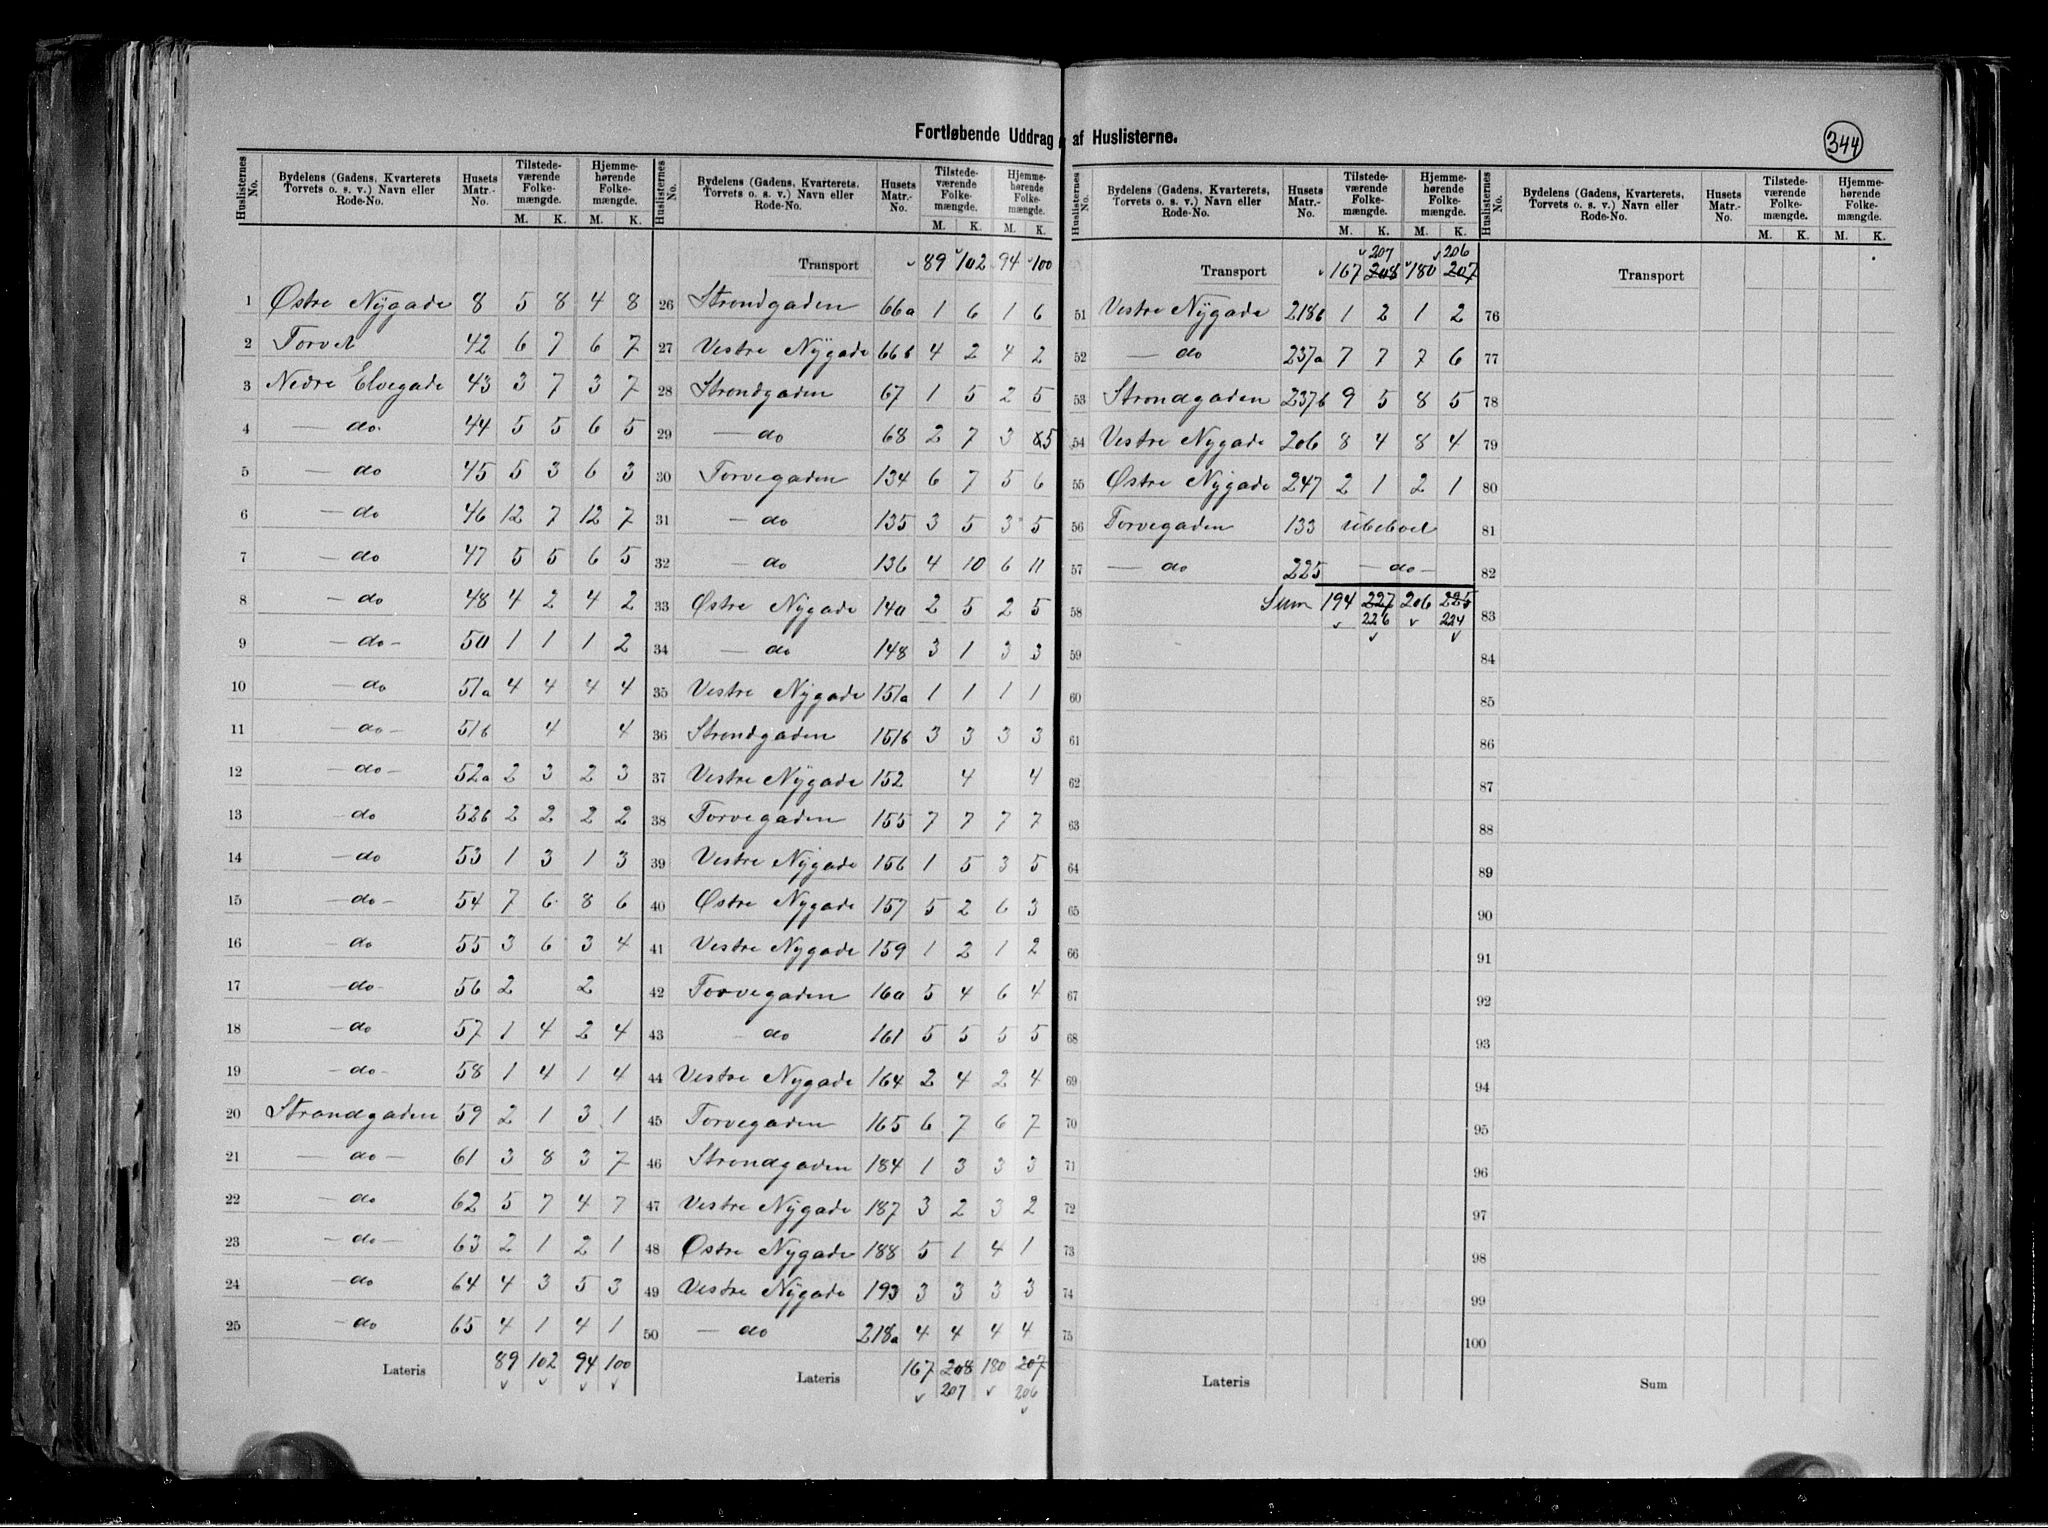 344
Fortløbende Uddrag af Huslisterne.
Huslisternes No. | Bydelens (Gadens, Kvarterets, Torvets o. s. v.) Navn eller Rode-No. | Husets Matr.-No. | Tilstedeværende Folkemængde. M. K. | Hjemmehørende Folkemængde. M. K.
1 Østre Nÿgade 8 5 8 4 8
2 Torvet 42 6 7 6 7
3 Nedre Elvegade 43 3 7 3 7
4 — do. 44 5 5 6 5
5 — do 45 5 3 6 3
6 — do 46 12 7 12 7
7 — do 47 5 5 6 5
8 — do 48 4 2 4 2
9 — do- 50 1 1 1 2
10 — do 51a 4 4 4 4
11 — do- 51b 4 4
12 — do- 52a 2 3 2 3
13 — do 52b 2 2 2 2
14 — do 53 1 3 1 3
15 — do- 54 7 6 8 6
16 — do 55 3 6 3 4
17 — do- 56 2 2
18 — do 57 1 4 2 4
19 — do- 58 1 4 1 4
20 Strandgaden 59 2 1 3 1
21 — do — 61 3 8 3 7
22 — do 62 5 7 4 7
23 — do — 63 2 1 2 1
24 — do 64 4 3 5 3
25 — do 65 4 1 4 1
Lateris 89 102 94 100
Huslisternes No. | Bydelens (Gadens, Kvarterets, Torvets o. s. v.) Navn eller Rode-No. | Husets Matr.-No. | Tilstedeværende Folkemængde. M. K. | Hjemmehørende Folkemængde. M. K.
Transport 89 102 94 100
26 Strandgaden 66a 1 6 1 6
27 Vestre Nÿgade 66b 4 2 4 2
28 Strandgaden 67 1 5 2 5
29 — do 68 2 7 3 5
30 Torvegaden 134 6 7 5 6
31 — do 135 3 5 3 5
32 — do 136 4 10 6 11
33 Østre Nÿgade 140 2 5 2 5
34 — do 148 3 1 3 3
35 Vestre Nÿgade 151a 1 1 1 1
36 Strandgaden 151b 3 3 3 3
37 Vestre Nÿgade 152 4 4
38 Torvegaden 155 7 7 7 7
39 Vestre Nÿgade 156 1 5 3 5
40 Østre Nÿgade 157 5 2 6 3
41 Vestre Nÿgade 159 1 2 1 2
42 Torvegaden 160 5 4 6 4
43 — do 161 5 5 5 5
44 Vestre Nÿgade 164 2 4 2 4
45 Torvegaden 165 6 7 6 7
46 Strandgaden 184 1 3 3 3
47 Vestre Nÿgade 187 3 2 3 2
48 Østre Nÿgade 188 5 1 4 1
49 Vestre Nÿgade 193 3 3 3 3
50 — do 218a 4 4 4 4
Lateris 167 208 180 207
207 206
Huslisternes No. | Bydelens (Gadens, Kvarterets, Torvets o. s. v.) Navn eller Rode-No. | Husets Matr.-No. | Tilstedeværende Folkemængde. M. K. | Hjemmehørende Folkemængde. M. K.
207 206
Transport 167 208 180 207
51 Vestre Nÿgade 218b 1 2 1 2
52 — do 237a 7 7 7 6
53 Strandgaden 237b 9 5 8 5
54 Vestre Nÿgade 206 8 4 8 4
55 Østre Nÿgade 247 2 1 2 1
56 Torvegaden 133 ubeboet
57 — do 225 — do —
58 Sum 194 227 206 225
226 224
59
60
61
62
63
64
65
66
67
68
69
70
71
72
73
74
75
Lateris
Huslisternes No. | Bydelens (Gadens, Kvarterets, Torvets o. s. v.) Navn eller Rode-No. | Husets Matr.-No. | Tilstedeværende Folkemængde. M. K. | Hjemmehørende Folkemængde. M. K.
Transport
76
77
78
79
80
81
82
83
84
85
86
87
88
89
90
91
92
93
94
95
96
97
98
99
100
Sum